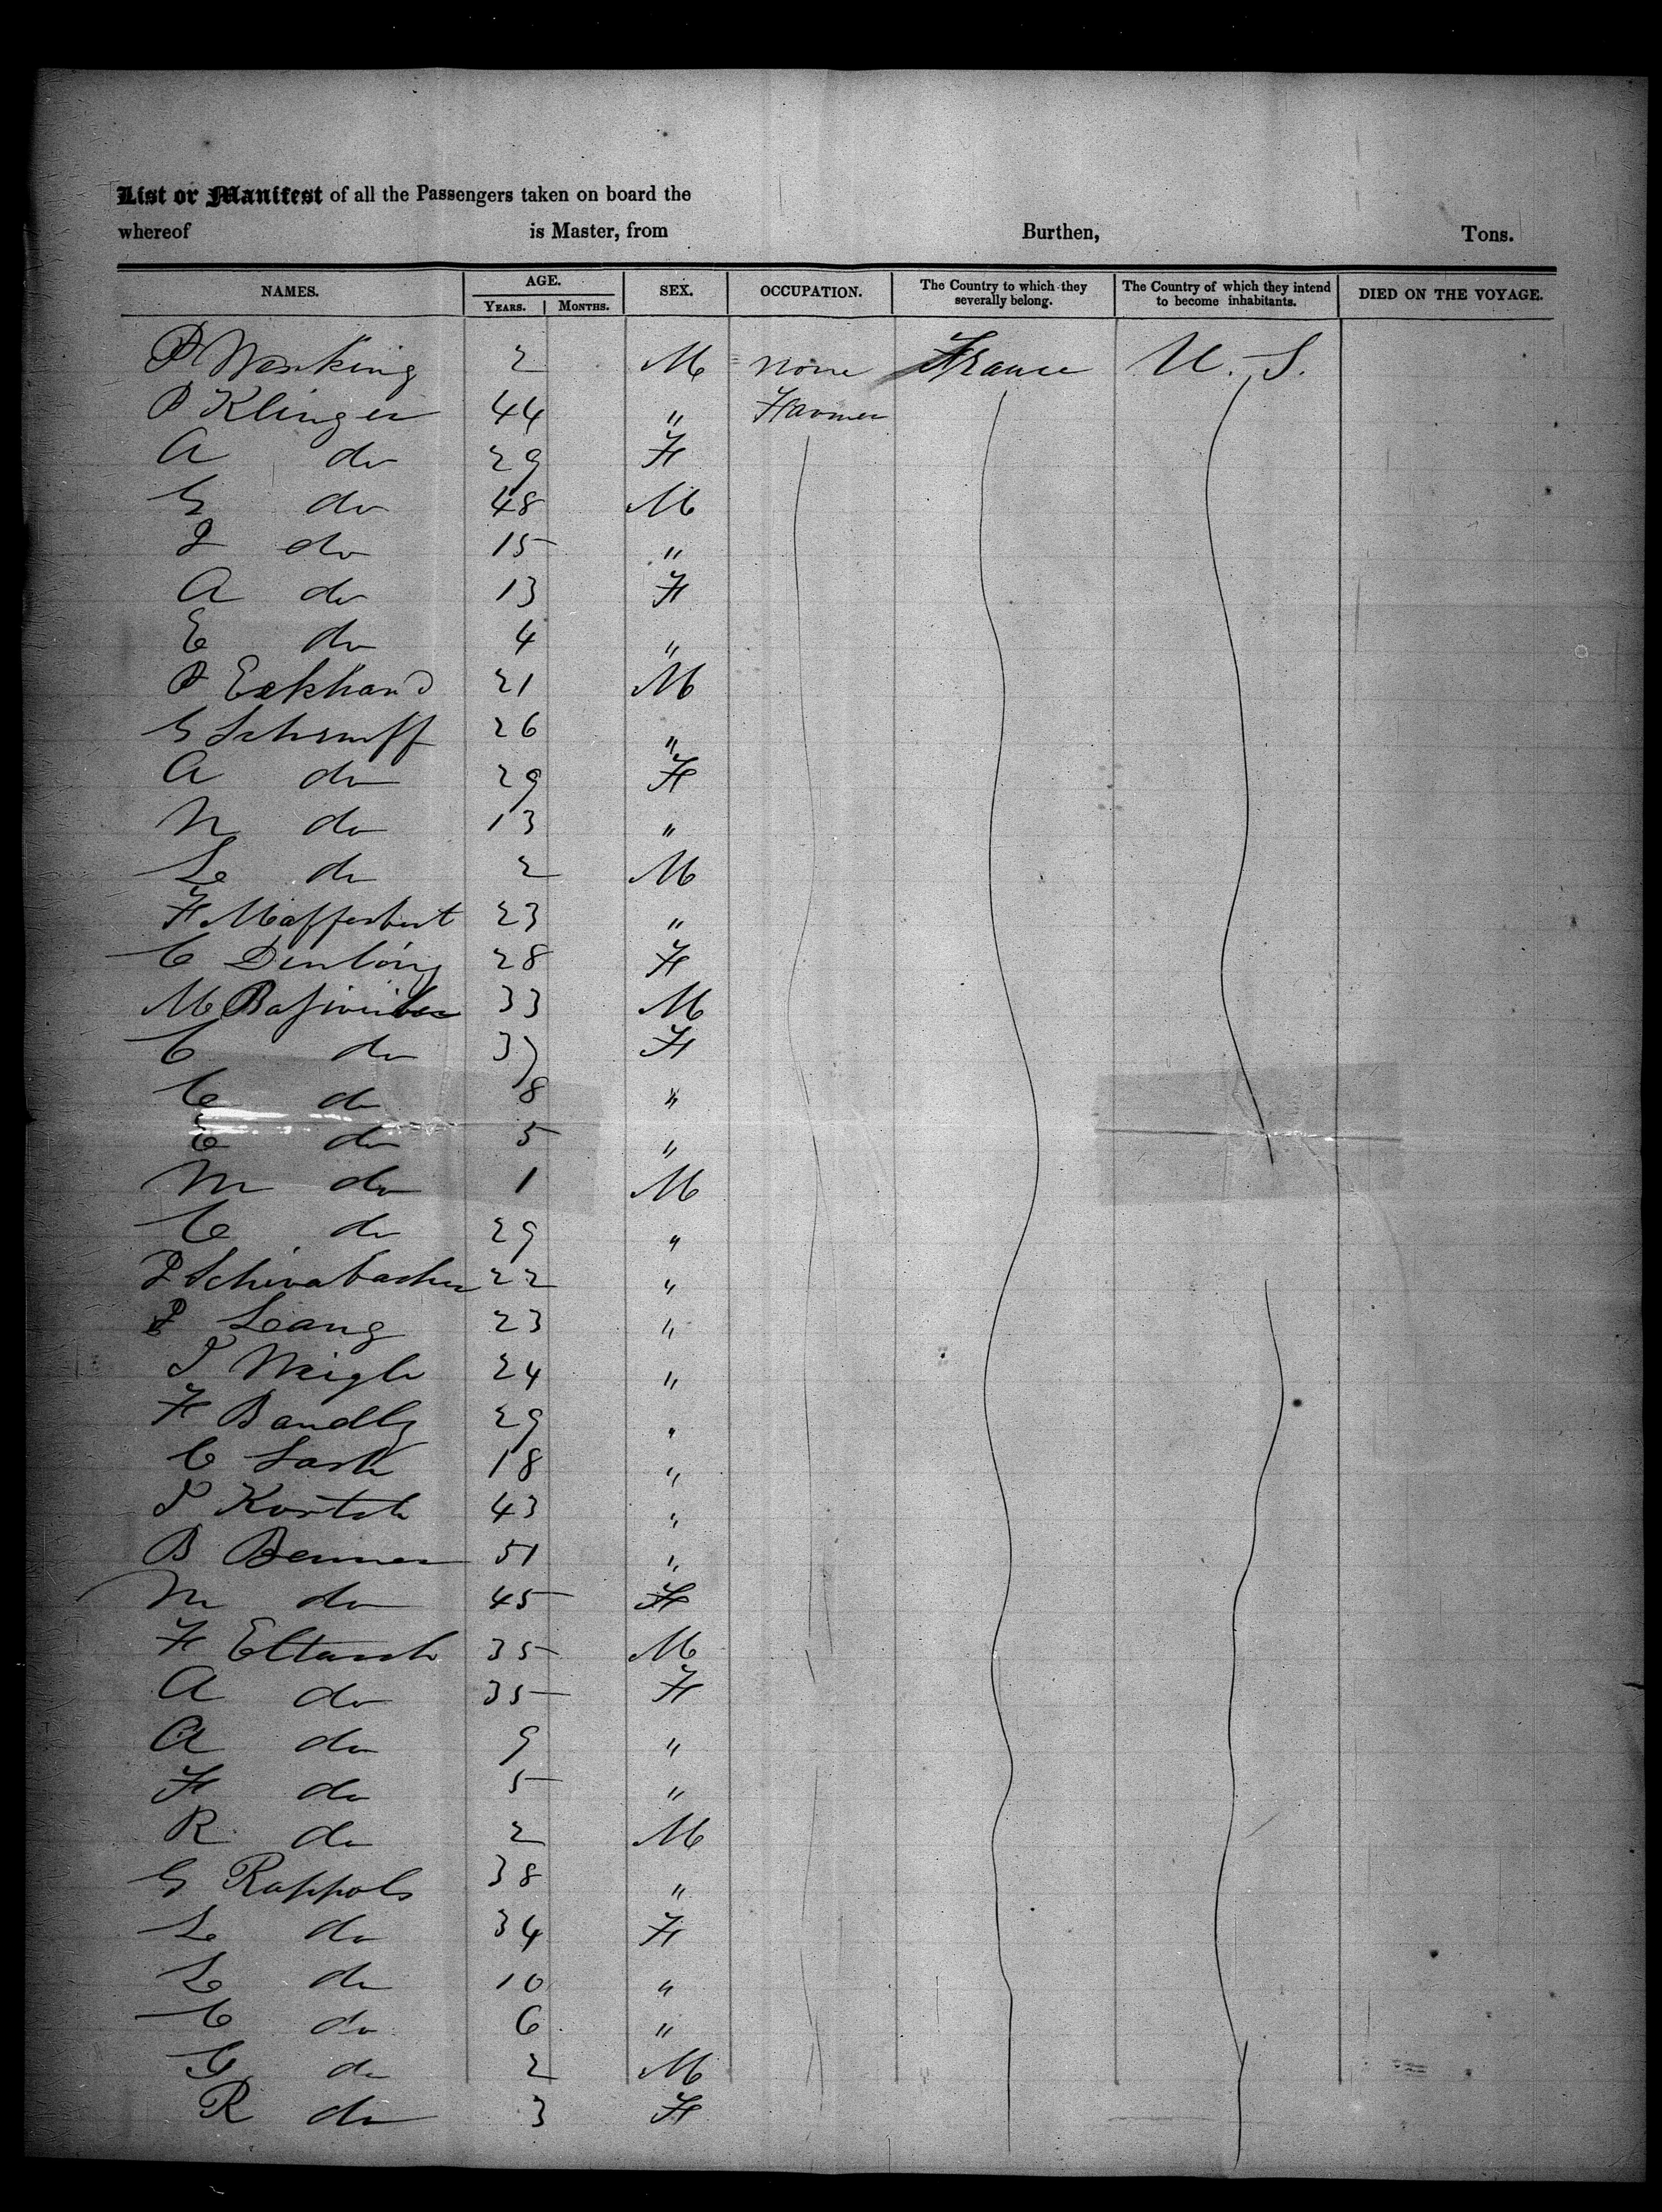 List or Manifest of all the Passengers taken on board the
whereof is Master, from Burthen, Tons.
NAMES. AGE. YEARS. MONTHS. SEX. OCCUPATION. The Country to which they severally belong. The Country of which they intend to become inhabitants. DIED ON THE VOYAGE.
P 2 M none France U. S.
P Klinger 44 " Farmer
A do 29 F
G do 48 M
J do 15 "
A do 13 F
E do 4 "
P Eckhard 21 M
G 26 "
A do 29 F
N do 13 "
L do 2 M
F 23 "
C 28 F
M 33 M
C do 37 F
C do 8 "
E do 5 "
M do 1 M
C do 29 "
J Schwabacher 22 "
Leang 23 "
J Weigle 24 "
F Bandly 29 "
C 18 "
J 43 "
B Benner 51 "
M do 45 F
F 35 M
A do 35 F
A do 9 "
F do 5 "
R do 2 M
G Rappols 38 "
L do 34 F
L do 10 "
C do 6 "
G do 2 M
R do 3 F